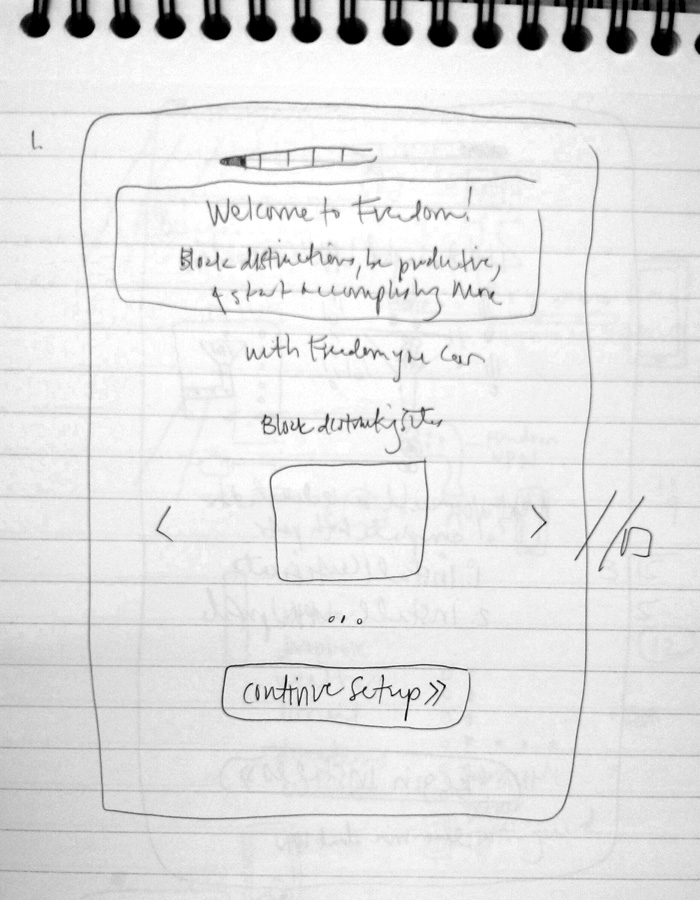 1.
Welcome to Freedom!
Block distractions, be productive,
& start accomplishing more
with Freedom you can
Block distracting sites
<
>
...
continue setup >>